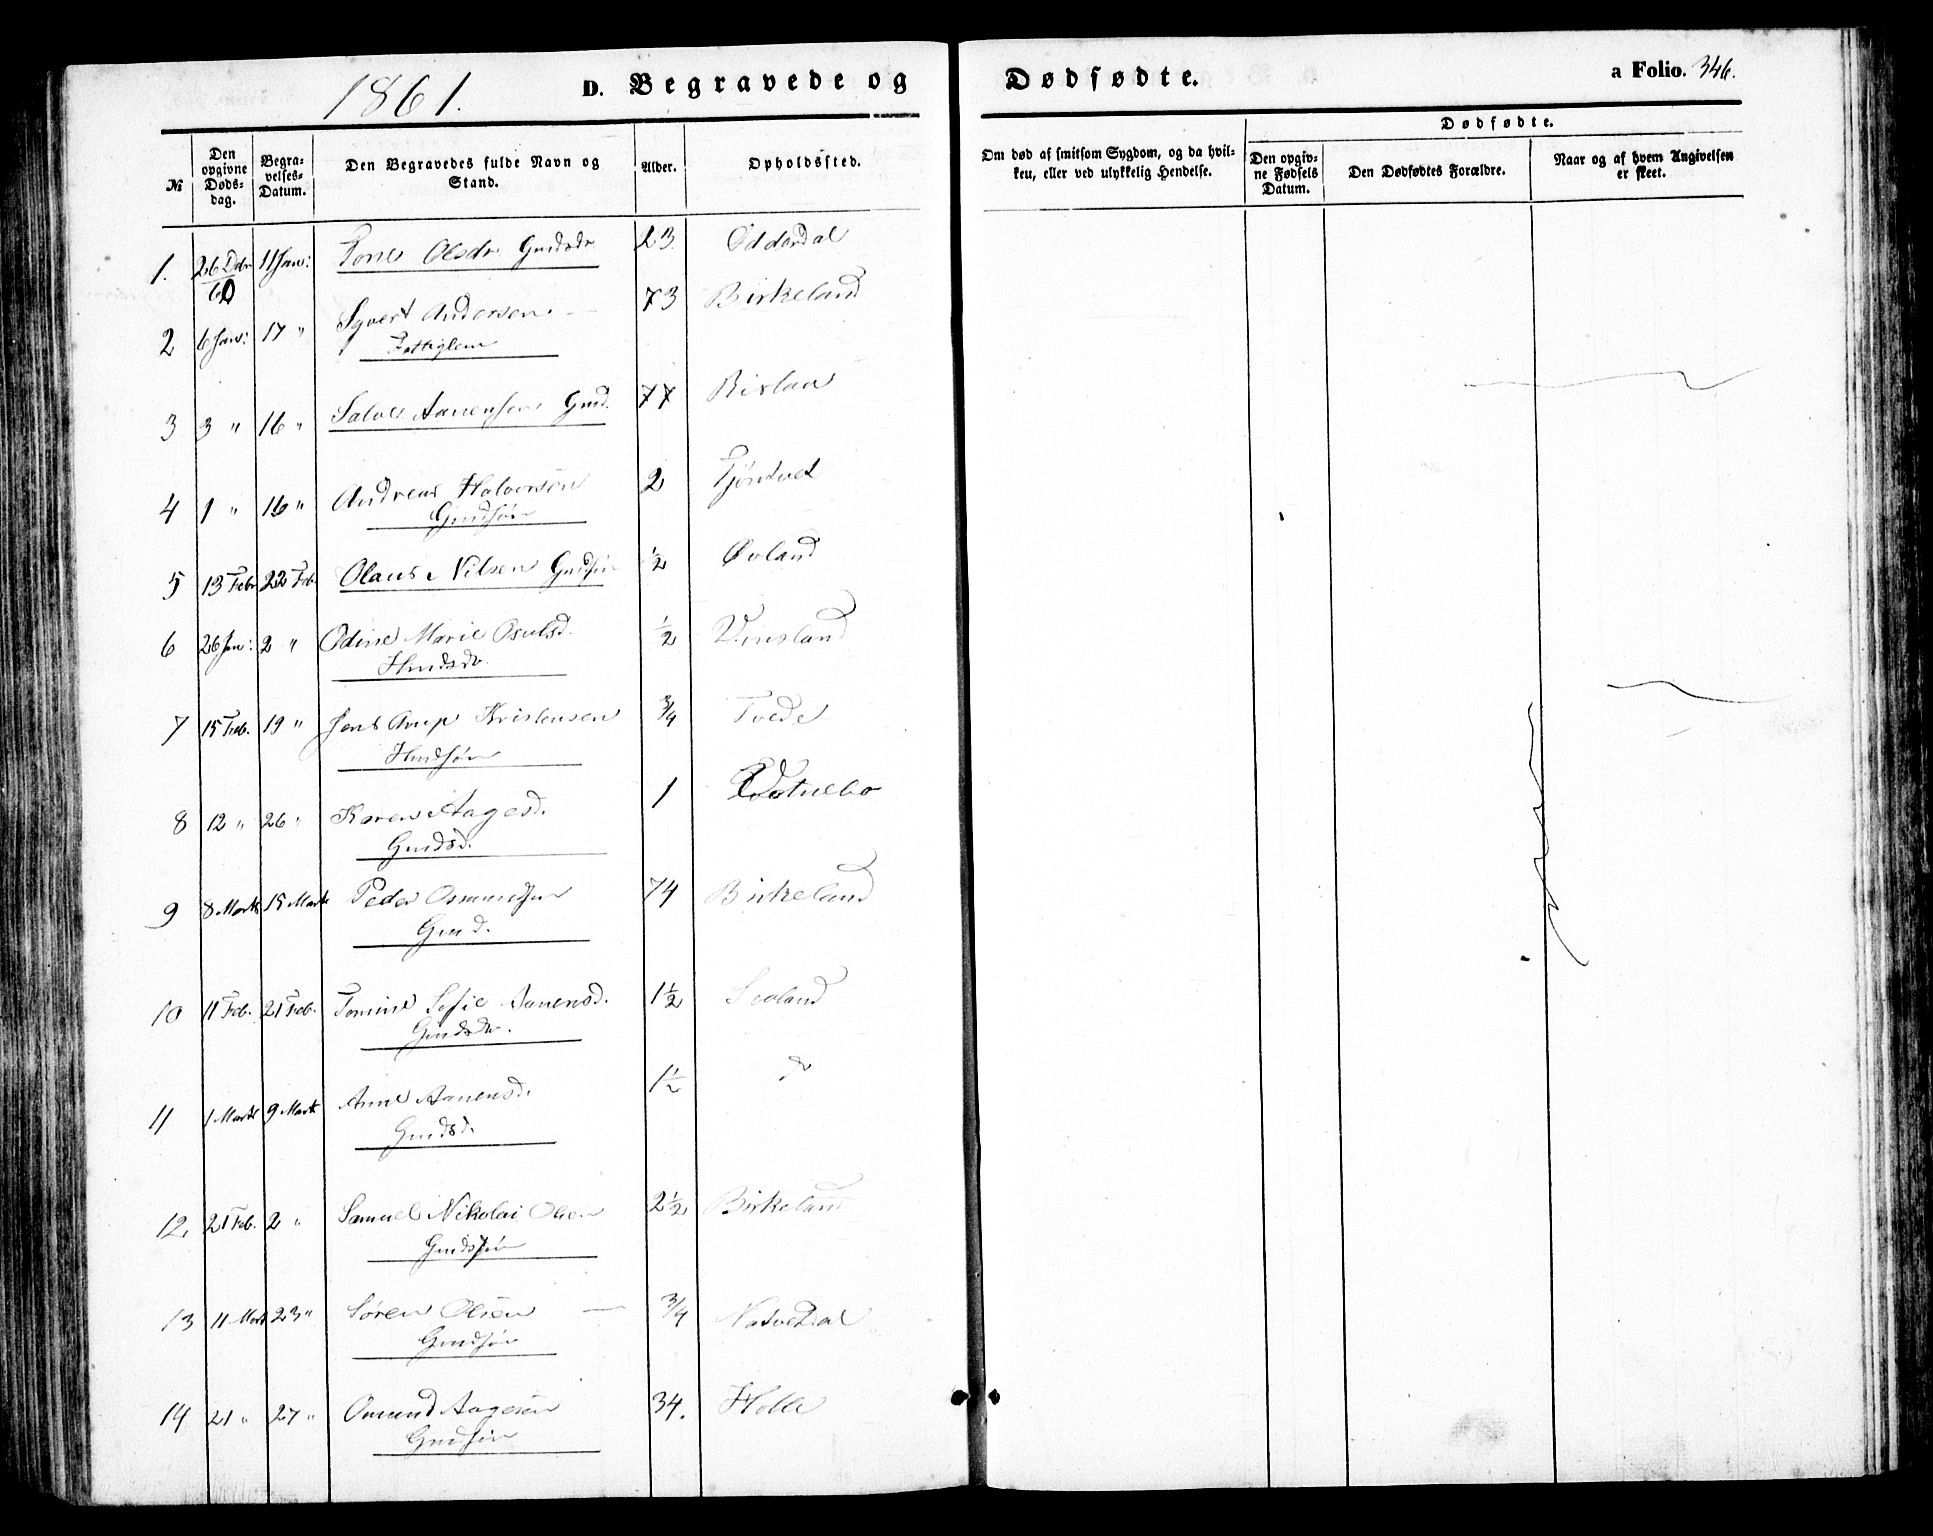 1861.
D. Begravede og Dødfødte.
a Folio. 346.
№
Den opgivne Døds-dag.
Begra-velses-Datum.
Den Begravedes fulde Navn og Stand.
Alder.
Opholdssted.
Om død af smitsom Sygdom, og da hvil-ken, eller ved ulykkelig Hendelse.
Dødfødte.
Den opgiv-ne Fødsels Datum.
Den Dødfødtes Forældre.
Naar og af hvem Angivelsen er skeet.
1. 26 Dbr 60 11 Jan: Tone Olsdr Gmdsdr 23 Oddardal
2 6 Jan: 17 " Syvert Andersen 73 Birkeland
Fattiglem
3 3 " 16 " Salve Aanensen Gmd. 77 Rislaa
4 1 " 16 " Andreas Halvorsen 2 Tjöntvet
Gmdsøn
5 13 Febr 22 Feb. Olaus Nilsen Gmdsøn ½ Øvland
6 26 Jan: 2 " Odine Marie Osulsd. ½ Vinsland
Hmdsdr
7 15 Feb. 19 " Jens Arup Kristensen ¾ Tvede
Hmdsøn
8 12 " 26 " Karen Aagesd. 1
Gmdsd.
9 8 Marts 15 Marts Peder Osmundsen 74 Birkeland
Gmd.
10 11 Feb. 21 Feb. Tomine Sofie Aanensd. 1½
Gmdsdr.
11 1 Marts 9 Marts Anne Aanensd. 1½ do
Gmdsd.
12. 21 Feb. 2 " Samuel Nikolai Olsen 2½ Birkeland
Gmdsøn
13 11 Mart 23 " Søren Olsen ¾ Natvedal
Gmdsøn
14 21 " 27 " Omund Aagesen 34. Holle
Gmdsøn